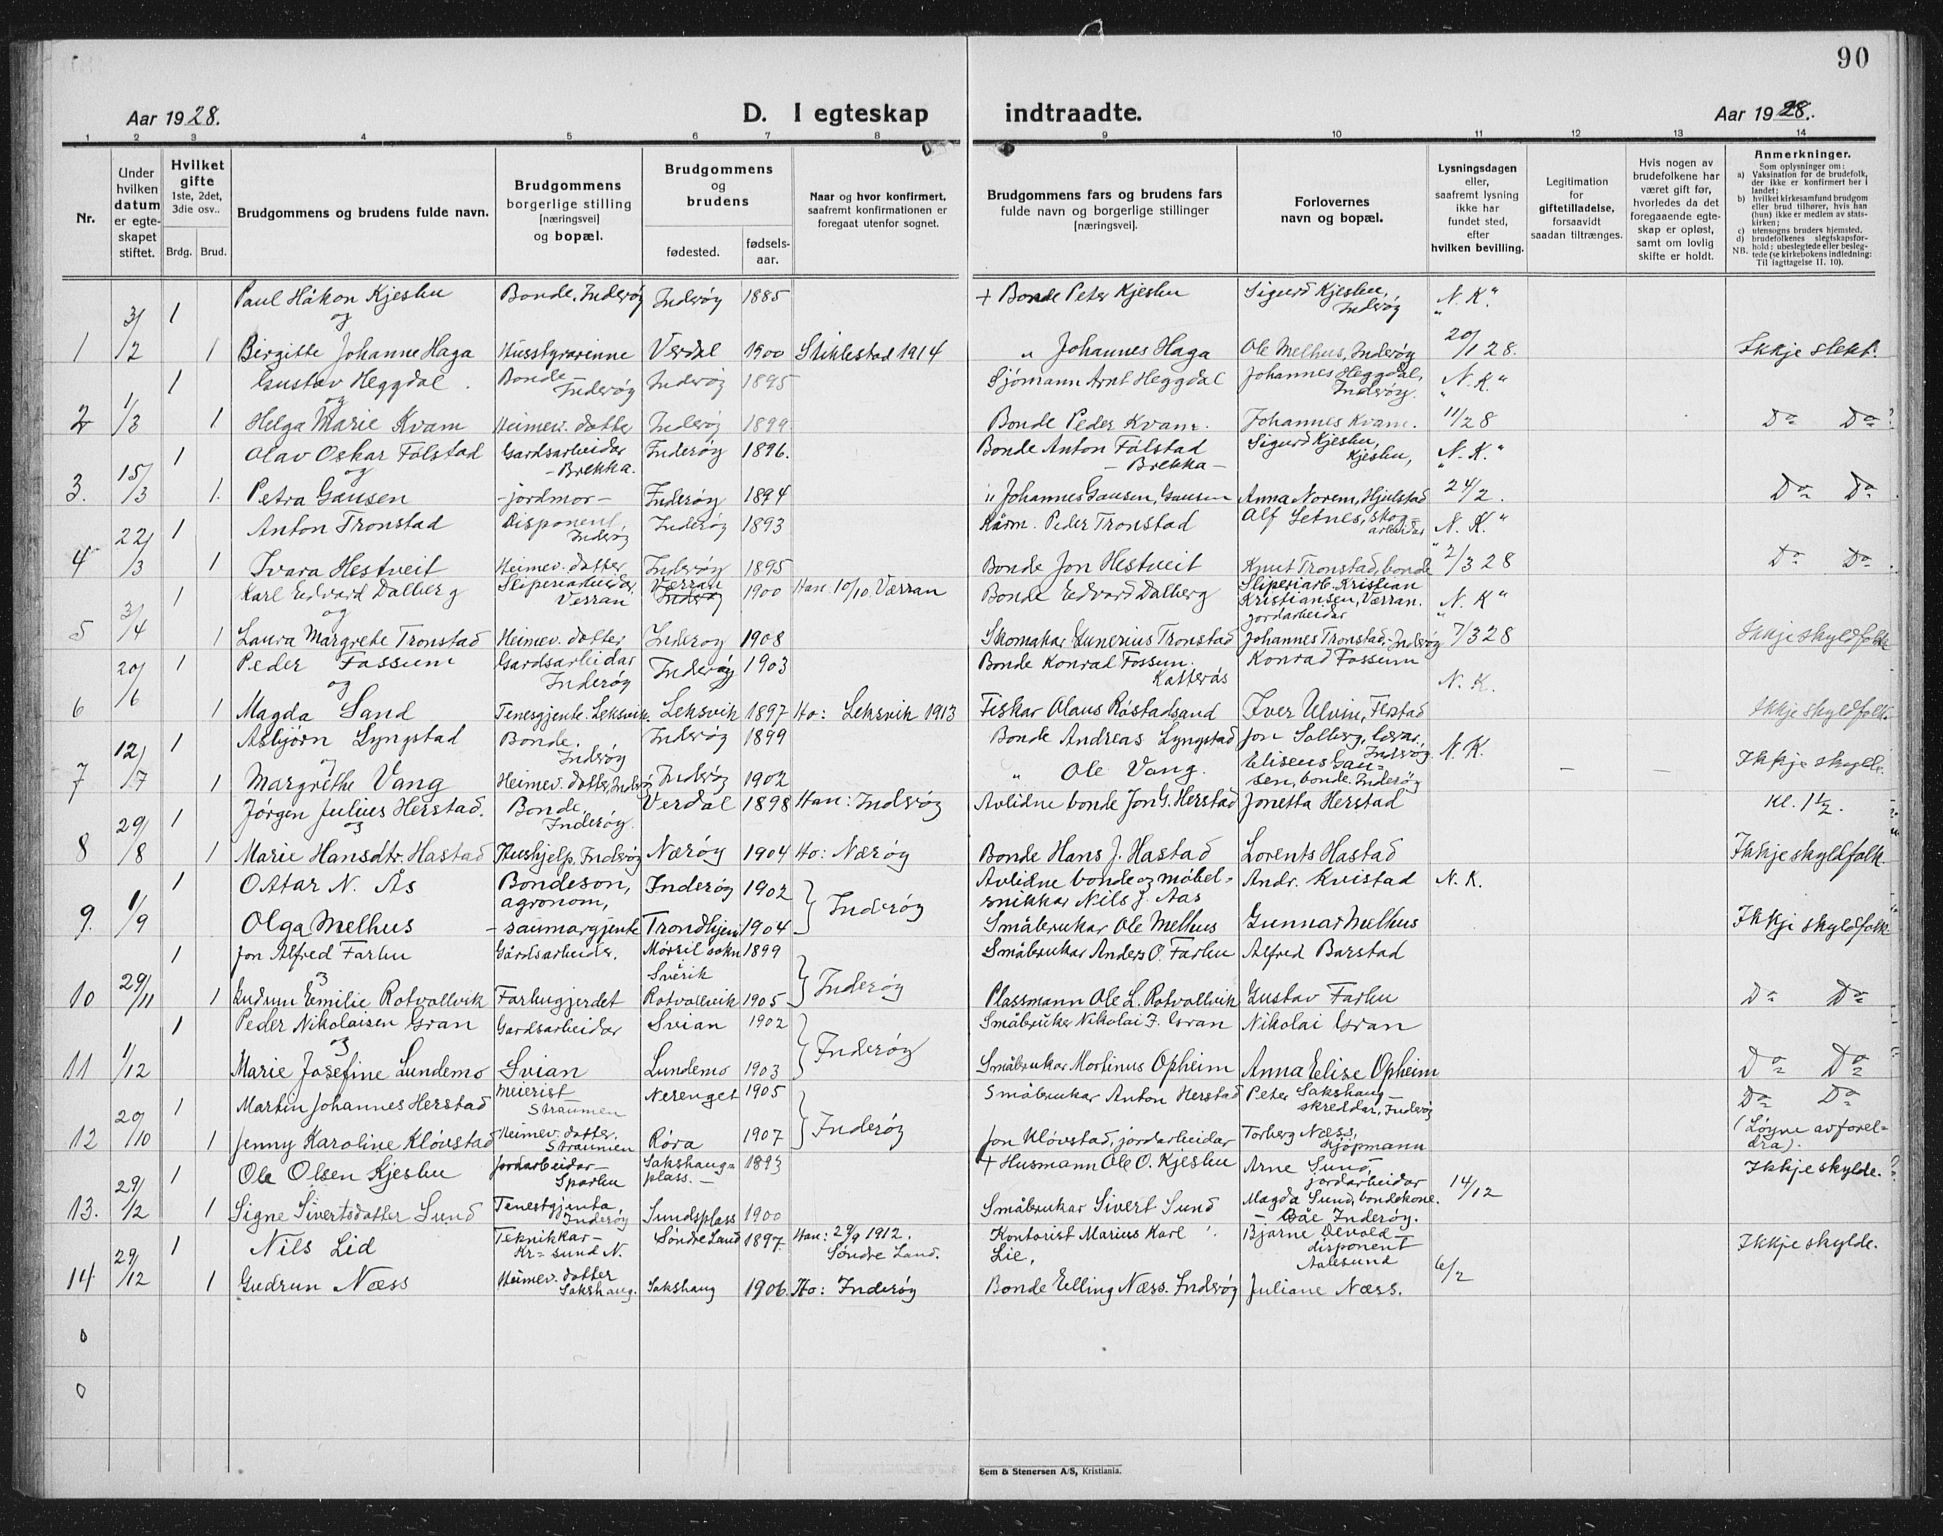 90
Aar 1928.
D. I egteskap indtraadte.
Aar 1928.
1 2 3 4 5 6 7 8 9 10 11 12 13 14
Nr.
Under hvilken datum er egteskapet stiftet.
Hvilket gifte 1ste, 2det, 3die osv.. Brdg. Brud.
Brudgommens og brudens fulde navn.
Brudgommens borgerlige stilling [næringsvei] og bopæl.
Brudgommens og brudens fødested. fødselsaar.
Naar og hvor konfirmert, saafremt konfirmationen er foregaat utenfor sognet.
Brudgommens fars og brudens fars fulde navn og borgerlige stillinger [næringsvei].
Forlovernes navn og bopæl.
Lysningsdagen eller, saafremt lysning ikke har fundet sted, efter hvilken bevilling.
Legitimation for giftetilladelse, forsaavidt saadan tiltrænges.
Hvis nogen av brudefolkene har været gift før, hvorledes da det foregaaende egteskap er opløst, samt om lovlig skifte er holdt.
Anmerkninger.
Som oplysninger om:
a) Vaksination for de brudefolk, der ikke er konfirmert her i landet;
b) hvilket kirkesamfund brudgom eller brud tilhører, hvis han (hun) ikke er medlem av statskirken;
c) utensogns bruders hjemsted.
d) brudefolkenes slegtskapsforhold: ubeslegtede eller beslegtede (se kirkebokens indledning:
NB. Til iagttagelse II. 10).
3/ 1 Paul Håkon Kjeslu Bonde, Inderøy Inderøy 1885 + Bonde Peter Kjeslu Sigurd Kjeslu, Inderøy "N. K."
og
1 /2 1 Birgitte Johanne Haga Husstyrarinne Verdal 1900 Stiklestad 1914 " Johannes Haga Ole Melhus, Inderøy 20/1 28. Ikkje slekt.
1 Gustav Heggdal Bonde Inderøy Inderøy 1895 Sjømann Arnt Heggdal Johannes Heggdal, Inderøy. "N. K."
og
2 1/3 1 Helga Marie Kvam Heimev. datte Inderøy 1899 Bonde Peder Kvam. Johannes Kvam. 11/2 8 Do Do
1 Olav Oskar Følstad Gardsarbeidar Brekka. Inderøy 1896. Bonde Anton Følstad - Brekka - Sigurd Kjeslu, Kjeslu, "N. K."
og
3. 15/3 1. Petra Gausen - jordmor - Inderøy 1894 " Johannes Gausen, Gausen Anna Norem, Hjulstad 24/2. Do Do
1 Anton Tronstad Disponent, Inderøy Inderøy 1893 Kårm. Peder Tronstad Alf Letnes, skogarbeidar "N. K."
4 22/3 1 Ivara Hestveit Heimev. datter Inderøy 1895 Bonde Jon Hestveit Knut Tronstad, bonde 2/3 28 Do Do
1 Karl Edvard Dalberg Sliperiarbeidar, Verran Verran Inderøy 1900 Han. 10/10. Værran Bonde Edvard Dalberg Sliperiarb. Kristian Kristiansen, Værran. "N. K."
og
5 3/4 1 Laura Margrete Tronstad Heimev. datter Inderøy 1908 Skomakar Eunerius Tronstad jordarbeidar Johannes Tronstad, Inderøy 7/3 28 Ikkje skyldfolk
20/ 1 Peder Fossum Gardsarbeidar Inderøy Inderøy 1903 Bonde Konrad Fossum. Katterås Konrad Fossum N. K.
og
6 /6 1 Magda Sand Tenesgjente. Leksvik. Leksvik 1897 Ho: Leksvik 1913 Fiskar Olaus Røstadsand Iver Ulvin, Flostad Ikkje skyldfolk.
12/ 1 Asbjørn Lyngstad Bonde. Inderøy Inderøy 1899 Bonde Andreas Lyngstad Jon Solberg, lærar, Inderøy N. K.
7 /7 1 Margrethe Vang Heimev. datter, Inderøy Inderøy 1902 " Ole Vang. Eliseus Gausen, bonde. Inderøy – – Ikkje skylde.
29/ 1 Jørgen Julius Herstad. Bonde, Inderøy. Verdal 1898 Han: Inderøy Avlidne bonde Jon G. Herstad Jonetta Herstad Kl. 1½.
og
8 /8 1 Marie Hansdtr. Hastad Hushjelp, Inderøy Nærøy 1904 Ho: Nærøy Bonde Hans J. Hastad Lorents Hastad Ikkje skyldfolk.
1 Ottar N. Ås Bondeson, agronom, Inderøy 1902 Avlidne bonde og møbelsnikkar Nils J. Aas Andr. Kvistad N. K.
9. 1/9 1 Olga Melhus - saumargjente Trondhjem 1904 } Inderøy Småbrukar Ole Melhus Gunnar Melhus Ikkje skyldfolk
1 Jon Alfred Farhu Gårdsarbeider. Mørsil sokn Svørik 1899 Småbrukar Anders O. Farhu Alfred Barstad
10 29/11 1 Gudrun Emilie Rotvollvik Farhugjerdet Rotvollvik 1905 } Inderøy Plassmann Ole L. Rotvollvik Gustav Farhu Do Do
1 Peder Nikolaisen Gran Gardsarbeidar Svian 1902 Småbruker Nikolai J. Gran Nikolai Gran
11 1/12 1 Marie Josefine Lundemo Svian Lundemo 1903 } Inderøy Småbrukar Mortinus Opheim Anna Elise Opheim Do Do
20/ 1 Martin Johannes Herstad Meierist Straumen Nerenget 1905 Småbrukar Anton Herstad Peter Sakshaug skreddar, Inderøy Do Do
12 /10 1 Jenny Karoline Kløvstad Heimev. datter. Straumen Røra 1907 } Inderøy Jon Kløvstad, jordarbeidar Torberg Næss, kjøpmann (Løyne av foreldra).
29/ 1 Ole Olsen Kjeslu Jordarbeidar – Sparlu Sakshaugplass. – 1893 + Husmann Ole O. Kjeslu Arne Sund, jordarbeidar Ikkje skylde.
13. /12 1 Signe Sivertsdatter Sund Tenestgjenta, Inderøy Sundsplass 1900 Småbrukar Sivert Sund Magda Sund, bondekone. – Båe Inderøy. 14/12
29/ 1 Nils Lid Teknikkar – Kr=sund N. Søndre Land 1897. Han: 29/9 1912. Søndre Land. Kontorist Marius Karl Lie, Bjarne Devold – disponent Aalesund Ikkje skylde.
14 /12 1 Gudrun Næss Heimev. datter Sakshaug. Sakshaug 1906. Ho: Inderøy Bonde Elling Næss. Inderøy Juliane Næss. 6/2
0
0
Sem & Stenersen A/S, Kristiania.